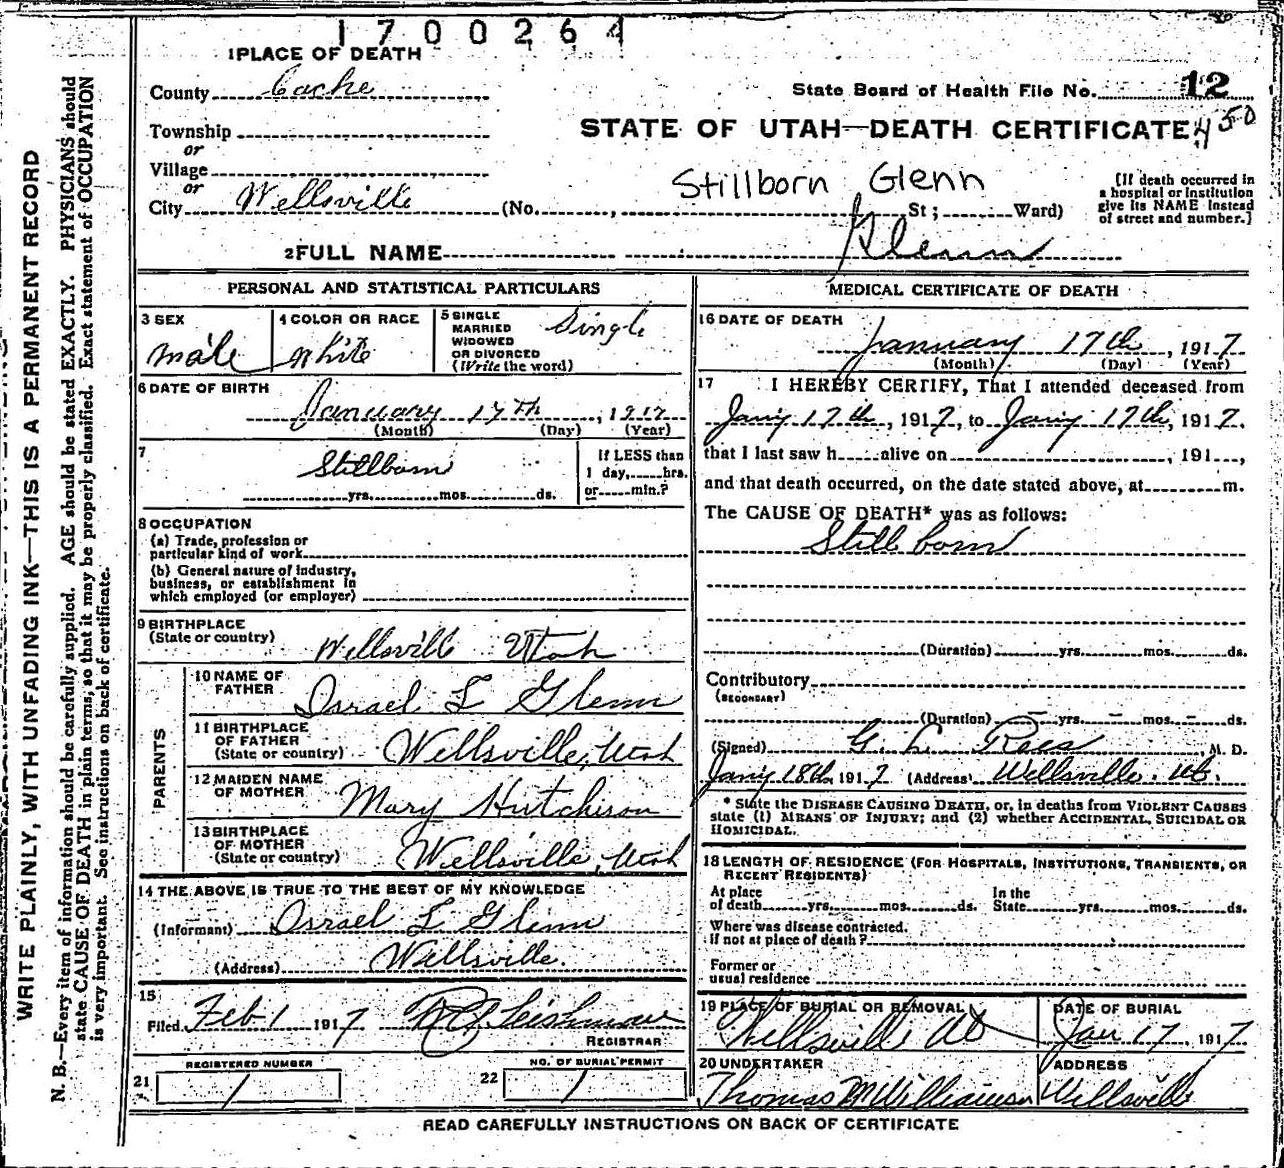 1700264
1 PLACE OF DEATH
County Cache
State Board of Health File No. 12
Township
or
STATE OF UTAH—DEATH CERTIFICATE 450
Village
or
Stillborn Glenn
City Wellsville (No. , St ; Ward)
[If death occurred in
a hospital or institution
give its NAME instead
of street and number.]
2 FULL NAME Glenn
WRITE PLAINLY, WITH UNFADING INK—THIS IS A PERMANENT RECORD
N. B.—Every item of information should be carefully supplied. AGE should be stated EXACTLY. PHYSICIANS should
state CAUSE OF DEATH in plain terms, so that it may be properly classified. Exact statement of OCCUPATION
is very important. See instructions on back of certificate.
PERSONAL AND STATISTICAL PARTICULARS
3 SEX
male
4 COLOR OR RACE
White
5 SINGLE
MARRIED
WIDOWED
OR DIVORCED
(Write the word)
Single
6 DATE OF BIRTH
January 17th, 1917
(Month) (Day) (Year)
7
Stillborn
yrs. mos. ds.
If LESS than
1 day, hrs.
or min.?
8 OCCUPATION
(a) Trade, profession or
particular kind of work
(b) General nature of industry,
business, or establishment in
which employed (or employer)
9 BIRTHPLACE
(State or country)
Wellsville Utah
PARENTS
10 NAME OF
FATHER
Israel L Glenn
11 BIRTHPLACE
OF FATHER
(State or country) Wellsville, Utah
12 MAIDEN NAME
OF MOTHER
Mary Hutchison
13 BIRTHPLACE
OF MOTHER
(State or country) Wellsville, Utah
14 THE ABOVE IS TRUE TO THE BEST OF MY KNOWLEDGE
(Informant) Israel L Glenn
(Address) Wellsville.
15
Filed Feb 1 1917 Leishman
REGISTRAR
REGISTERED NUMBER
21 1
NO. OF BURIAL PERMIT
22 1
MEDICAL CERTIFICATE OF DEATH
16 DATE OF DEATH
January 17th, 1917
(Month) (Day) (Year)
17 I HEREBY CERTIFY, That I attended deceased from
Jany 17th, 1917, to Jany 17th, 1917.
that I last saw h alive on , 191 ,
and that death occurred, on the date stated above, at m.
The CAUSE OF DEATH* was as follows:
Still born
(Duration) yrs. mos. ds.
Contributory
(SECONDARY)
(Duration) – yrs. – mos. – ds.
(Signed) G. L. Rees, M. D.
Jany 18th 1917 (Address) Wellsville. Ut.
* State the DISEASE CAUSING DEATH, or, in deaths from VIOLENT CAUSES
state (1) MEANS OF INJURY; and (2) whether ACCIDENTAL, SUICIDAL OR
HOMICIDAL.
18 LENGTH OF RESIDENCE (FOR HOSPITALS, INSTITUTIONS, TRANSIENTS, OR
RECENT RESIDENTS)
At place
of death yrs. mos. ds.
In the
State yrs. mos. ds.
Where was disease contracted,
if not at place of death?
Former or
usual residence
19 PLACE OF BURIAL OR REMOVAL
Wellsville Ut
DATE OF BURIAL
Jan 17, 1917
20 UNDERTAKER
Thomas M Williamson
ADDRESS
Wellsville
READ CAREFULLY INSTRUCTIONS ON BACK OF CERTIFICATE